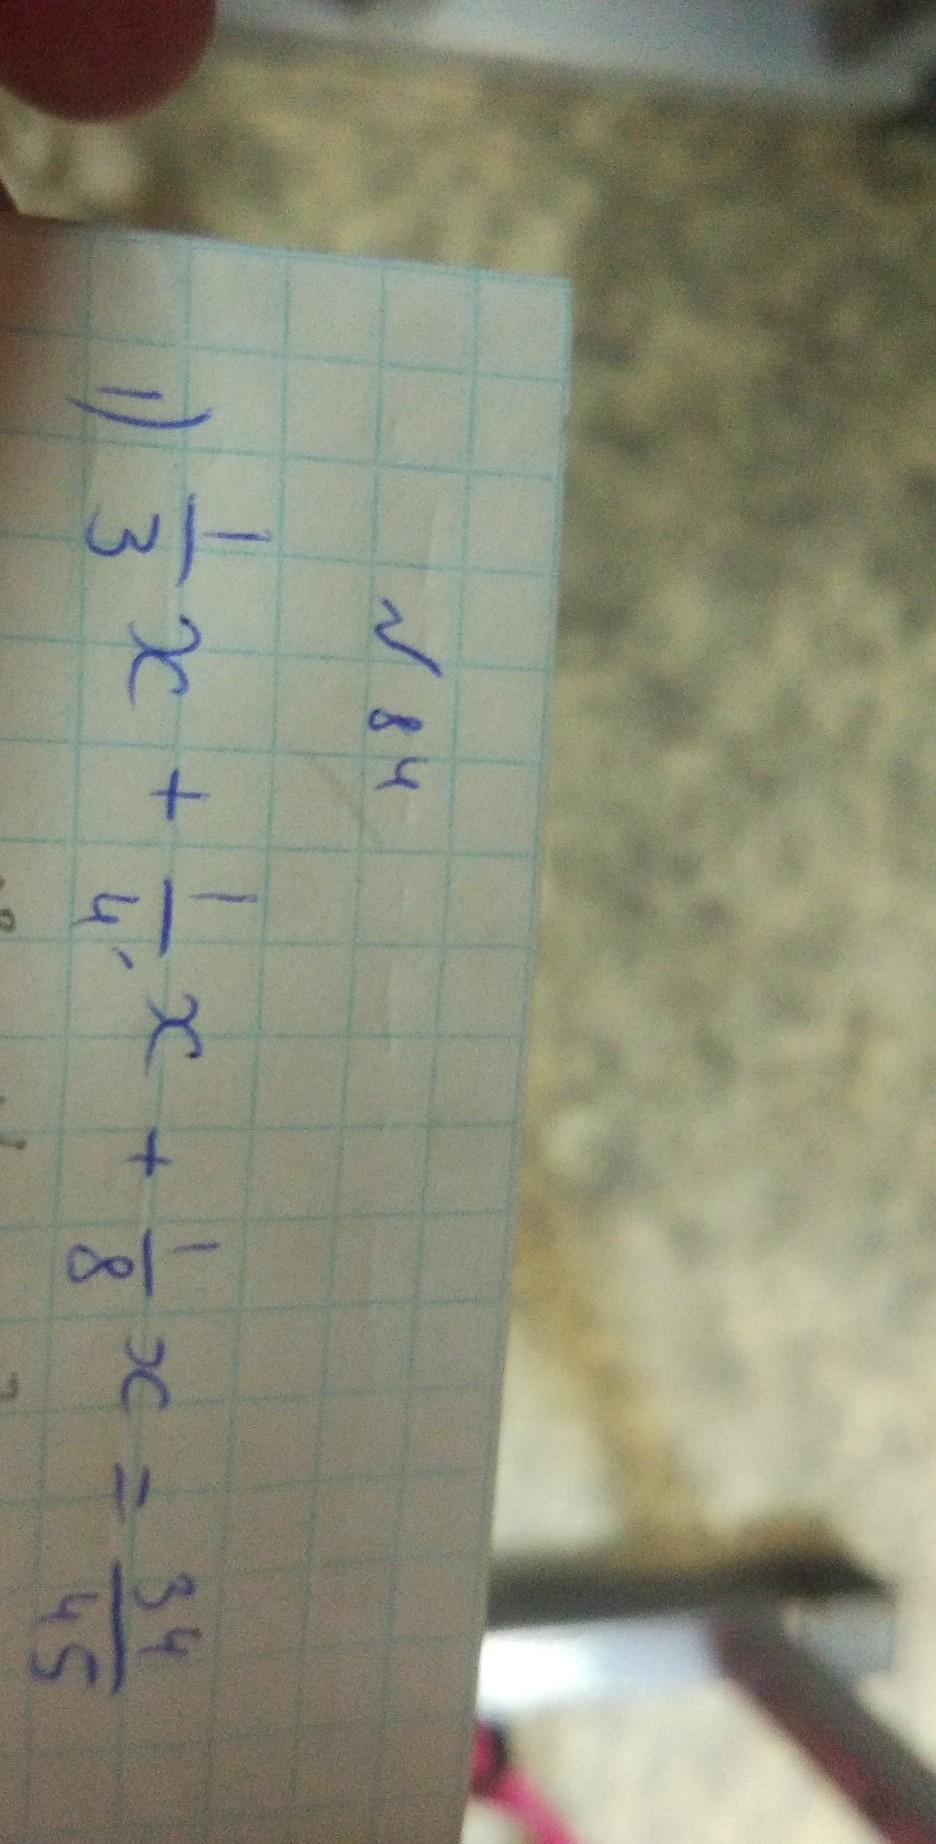 № 84
1) 1/3 x + 1/4 x + 1/8 x = 34/45